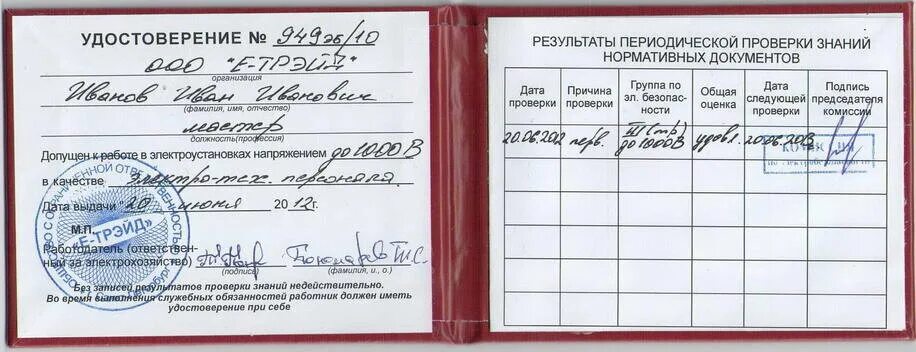 УДОСТОВЕРЕНИЕ № 949эб/10
ООО "Е-ТРЭЙД"
организация
Иванов Иван Иванович
(фамилия, имя, отчество)
мастер
должность(профессия)
Допущен к работе в электроустановках напряжением до 1000 В
в качестве электро-тех. персонала.
Дата выдачи "20 июня 2012г.
М.П.
Работодатель (ответствен-
ный за электрохозяйство)
(подпись) (фамилия, и., о.)
Без записей результатов проверки знаний недействительно.
Во время выполнения служебных обязанностей работник должен иметь
удостоверение при себе
"Е-ТРЭЙД"
РЕЗУЛЬТАТЫ ПЕРИОДИЧЕСКОЙ ПРОВЕРКИ ЗНАНИЙ
НОРМАТИВНЫХ ДОКУМЕНТОВ
Дата проверки Причина проверки Группа по эл. безопас-ности Общая оценка Дата следующей проверки Подпись председателя комиссии
20.06.2012 перв. III (тр) до 1000 В удовл. 20.06.2013